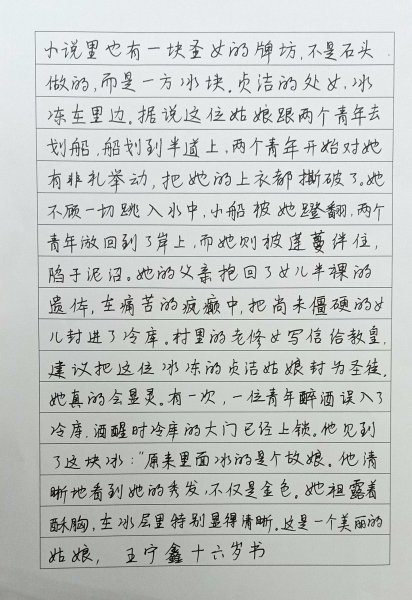 小说里也有一块圣女的牌坊，不是石头
做的，而是一方冰块。贞洁的处女，冰
冻在里边。据说这位姑娘跟两个青年去
划船，船划到半道上，两个青年开始对她
有非礼举动，把她的上衣都撕破了。她
不顾一切跳入水中，小船被她蹬翻，两个
青年游回到了岸上，而她则被莲蔓绊住，
陷于泥沼。她的父亲抱回了女儿半裸的
遗体，在痛苦的疯癫中，把尚未僵硬的女
儿封进了冷库。村里的老修女写信给教皇，
建议把这位冰冻的贞洁姑娘封为圣徒。
她真的会显灵。有一次，一位青年醉酒误入了
冷库，酒醒时冷库的大门已经上锁。他见到
了这块冰：“原来里面冰的是个姑娘。他清
晰地看到她的秀发，不仅是金色。她袒露着
酥胸，在冰层里特别显得清晰。这是一个美丽的
姑娘， 王宁鑫十六岁书